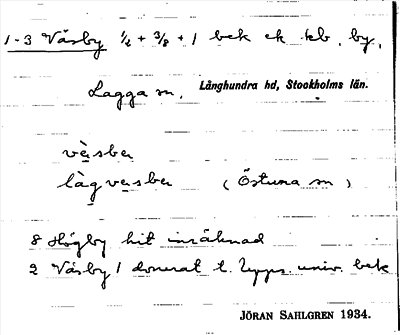 1-3 Väsby 1/4 + 3/8 + 1 bek ek kb. by,
Lagga sn, Långhundra hd, Stockholms län.
vèsbe
làgvesbe (Östuna sn)
8 Högby hit inräknad
2 Väsby 1 donerat t. Upps. univ. bek
JÖRAN SAHLGREN 1934.